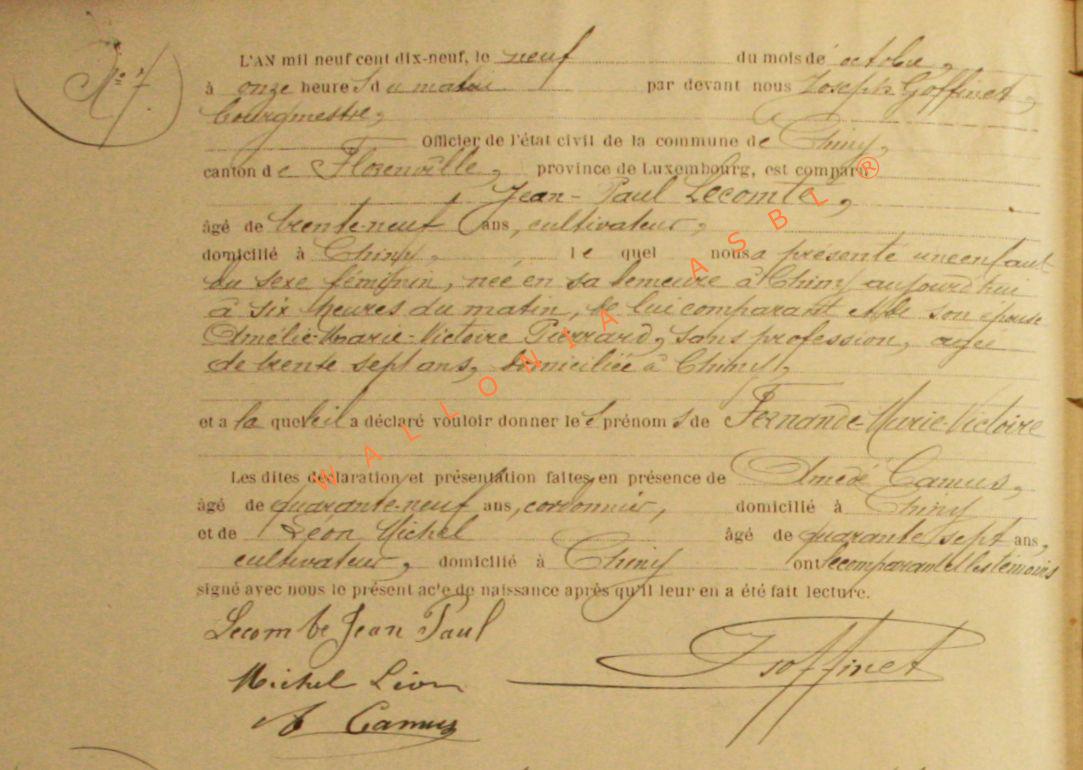 No 7
L'AN mil neuf cent dix-neuf, le neuf du mois de octobre,
à onze heure s d u matin par devant nous Joseph Goffinet,
bourgmestre,
Officier de l'état civil de la commune de Chiny,
canton d e Florenville, province de Luxembourg, est comparu
Jean-Paul Lecomte,
âgé de trente-neuf ans, cultivateur,
domicilié à Chiny, le quel nous a présenté un enfant
du sexe féminin, née en sa demeure à Chiny aujourd'hui
à six heures du matin, de lui comparant et de son épouse
Amélie-Marie-Victoire Pierrard, sans profession, agée
de trente sept ans, domiciliée à Chiny,
et a la quelle il a déclaré vouloir donner le s prénom s de Fernande-Marie-Victoire
Les dites déclaration et présentation faites en présence de Amedé Camus,
âgé de quarante-neuf ans, cordonnier, domicilié à Chiny
et de Léon Michel âgé de quarante sept ans,
cultivateur, domicilié à Chiny ont le comparant et les témoins
signé avec nous le présent acte de naissance après qu'il leur en a été fait lecture.
Lecomte Jean Paul
J Goffinet
Michel Léon
A Camus
WALLONIA ASBL ®